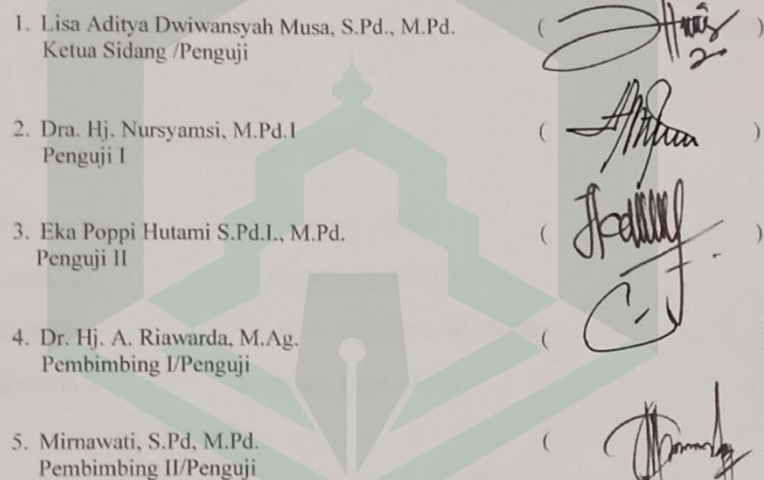 1. Lisa Aditya Dwiwansyah Musa, S.Pd., M.Pd. ( )
Ketua Sidang /Penguji
2. Dra. Hj. Nursyamsi, M.Pd.I ( )
Penguji I
3. Eka Poppi Hutami S.Pd.I., M.Pd. ( )
Penguji II
4. Dr. Hj. A. Riawarda, M.Ag. (
Pembimbing I/Penguji
5. Mirnawati, S.Pd, M.Pd. (
Pembimbing II/Penguji